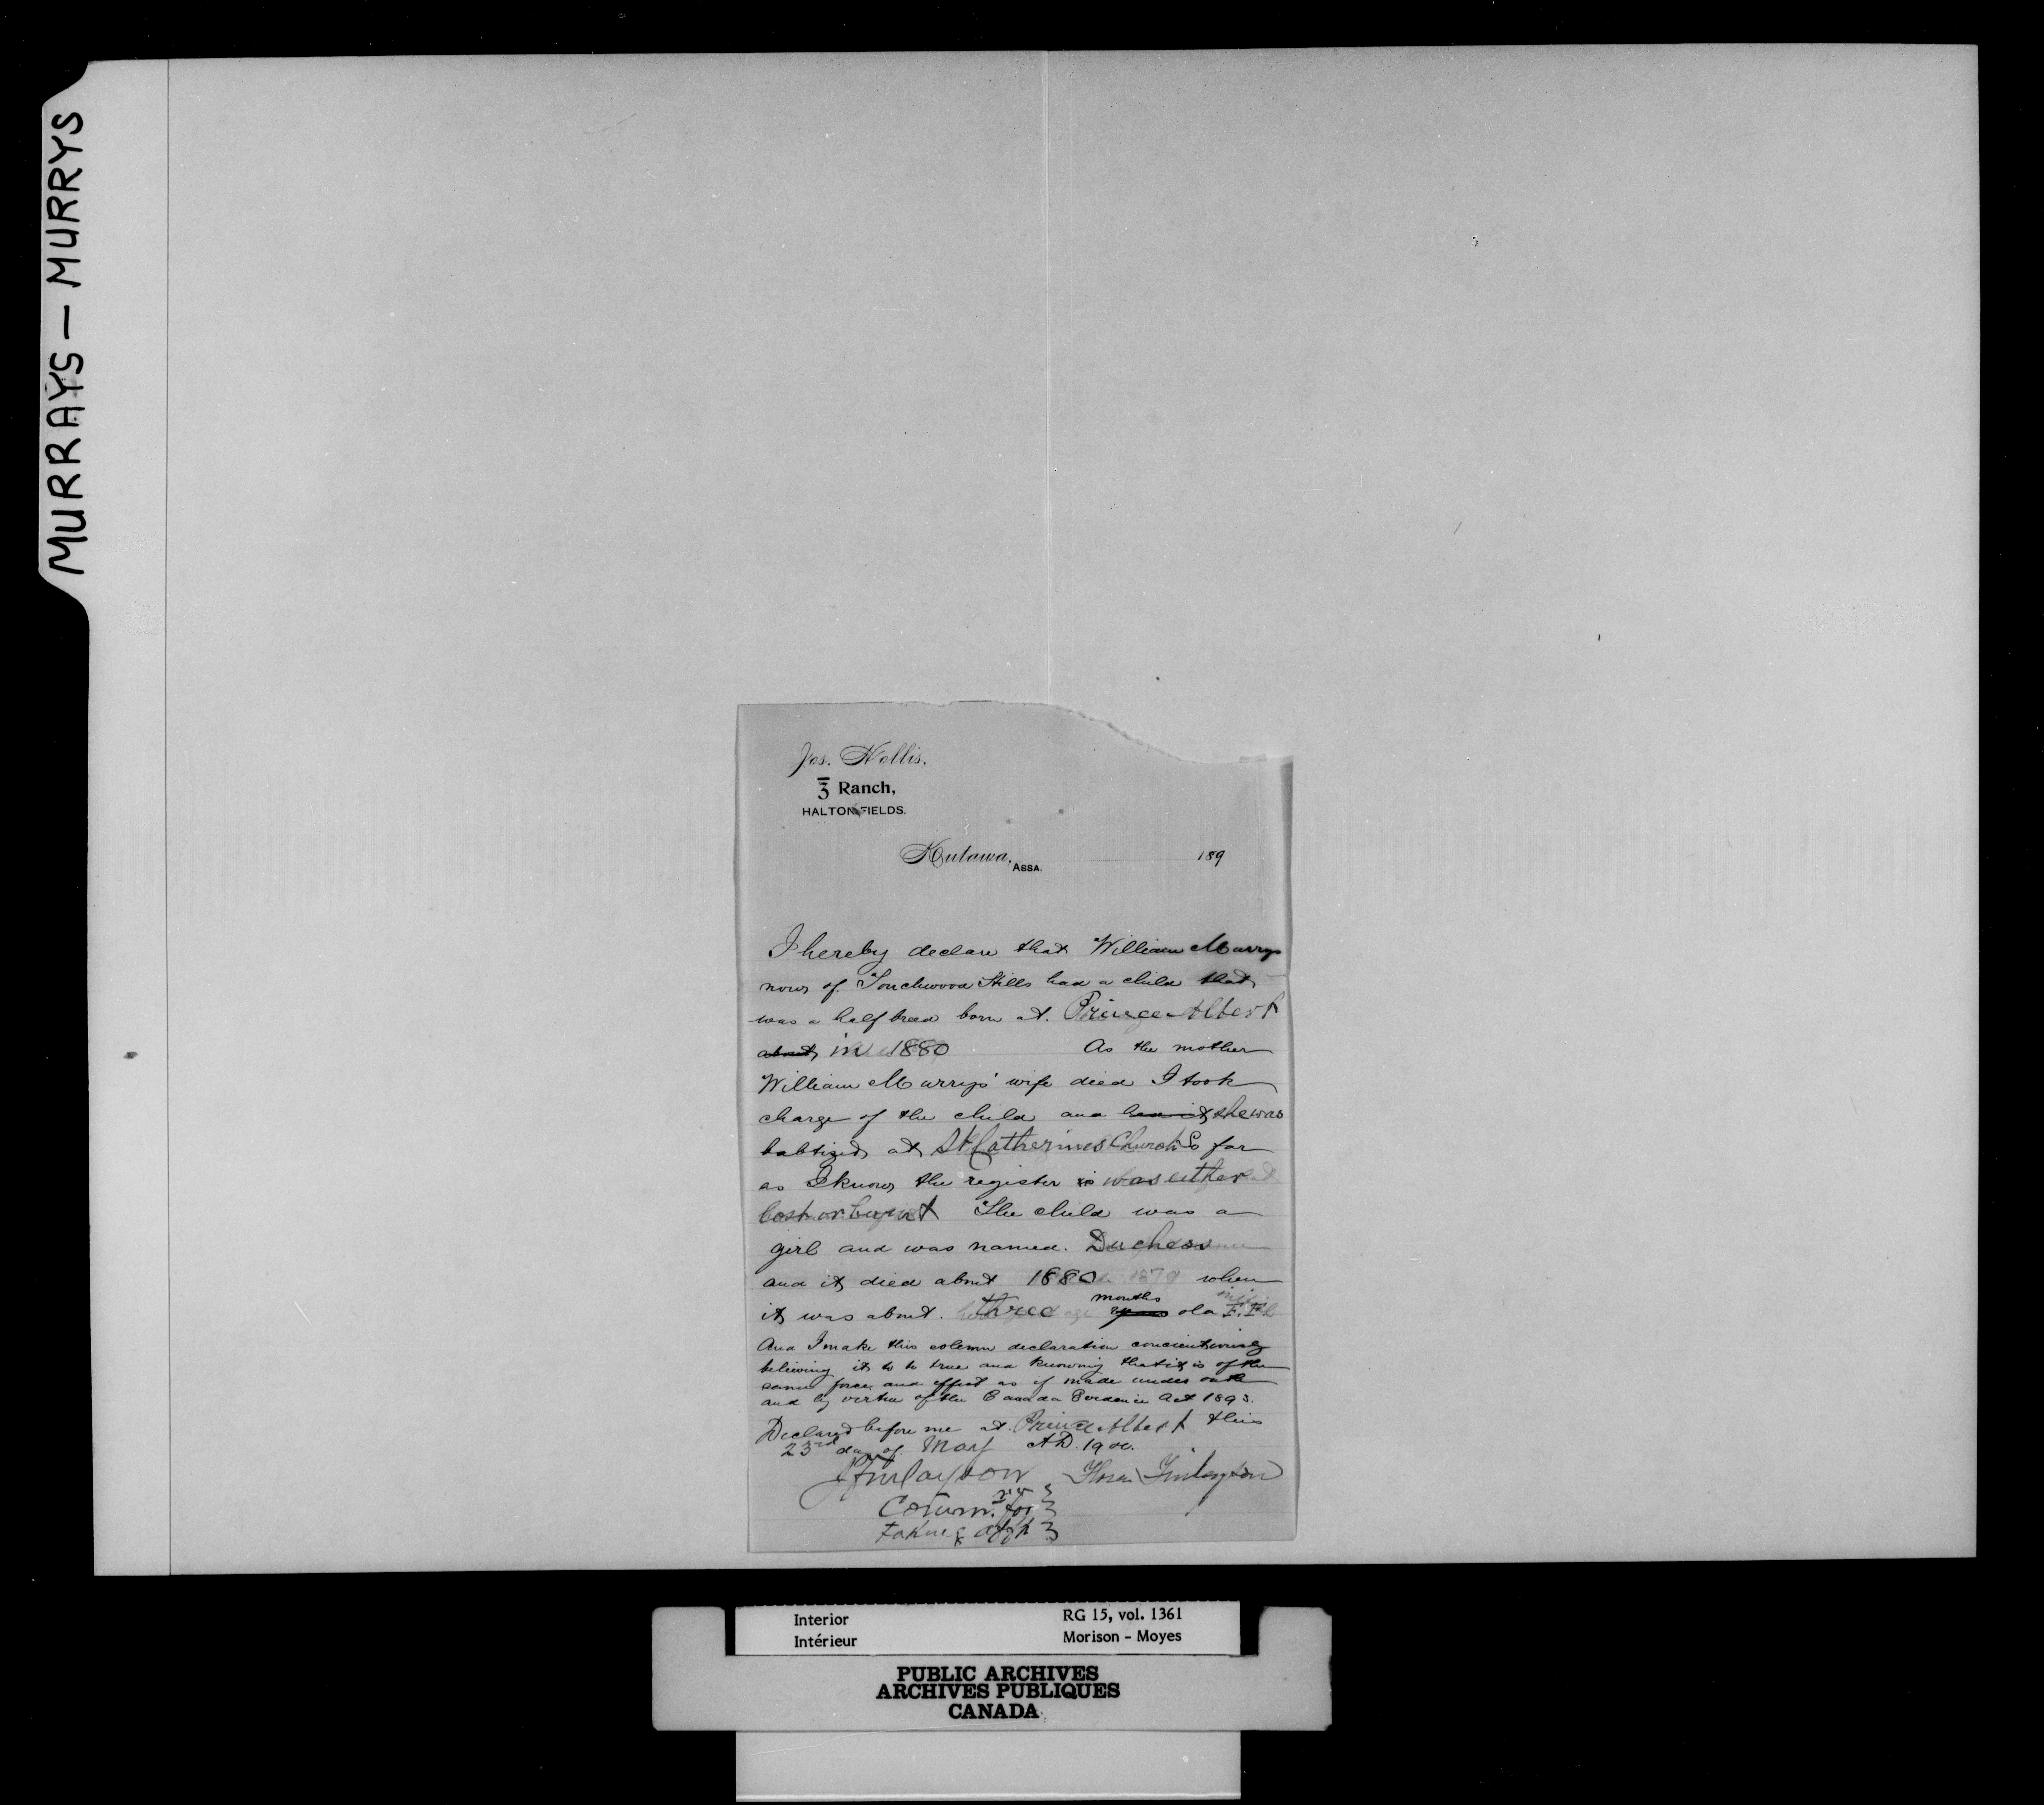 MURRAYS — MURRYS
Jos. Hollis.
3 Ranch,
HALTONFIELDS.
Kutawa, ASSA. 189
I hereby declare that William Murrys
now of Touchwood Hills had a child that
was a half breed born at. Prince Albert
about in 1880 As the mother
William Murrys' wife died I took
charge of the child and had it she was
babtized at St Catherines Church So far
as I know the register is was either
lost or burnt The child was a
girl and was named. Duchess
and it died about 1880 1879 when
it was about. three months years old F. F.
And I make this solemn declaration concientiously
believing it to be true and knowing that it is of the
same force and effect as if made under oath
and by virtue of the Canada Evidence Act 1893.
Declared before me at. Prince Albert this
23rd day of. May A.D. 1900.
J Finlayson Flora Finlayson
Comm. for
taking
Interior RG 15, vol. 1361
Intérieur Morison - Moyes
PUBLIC ARCHIVES
ARCHIVES PUBLIQUES
CANADA